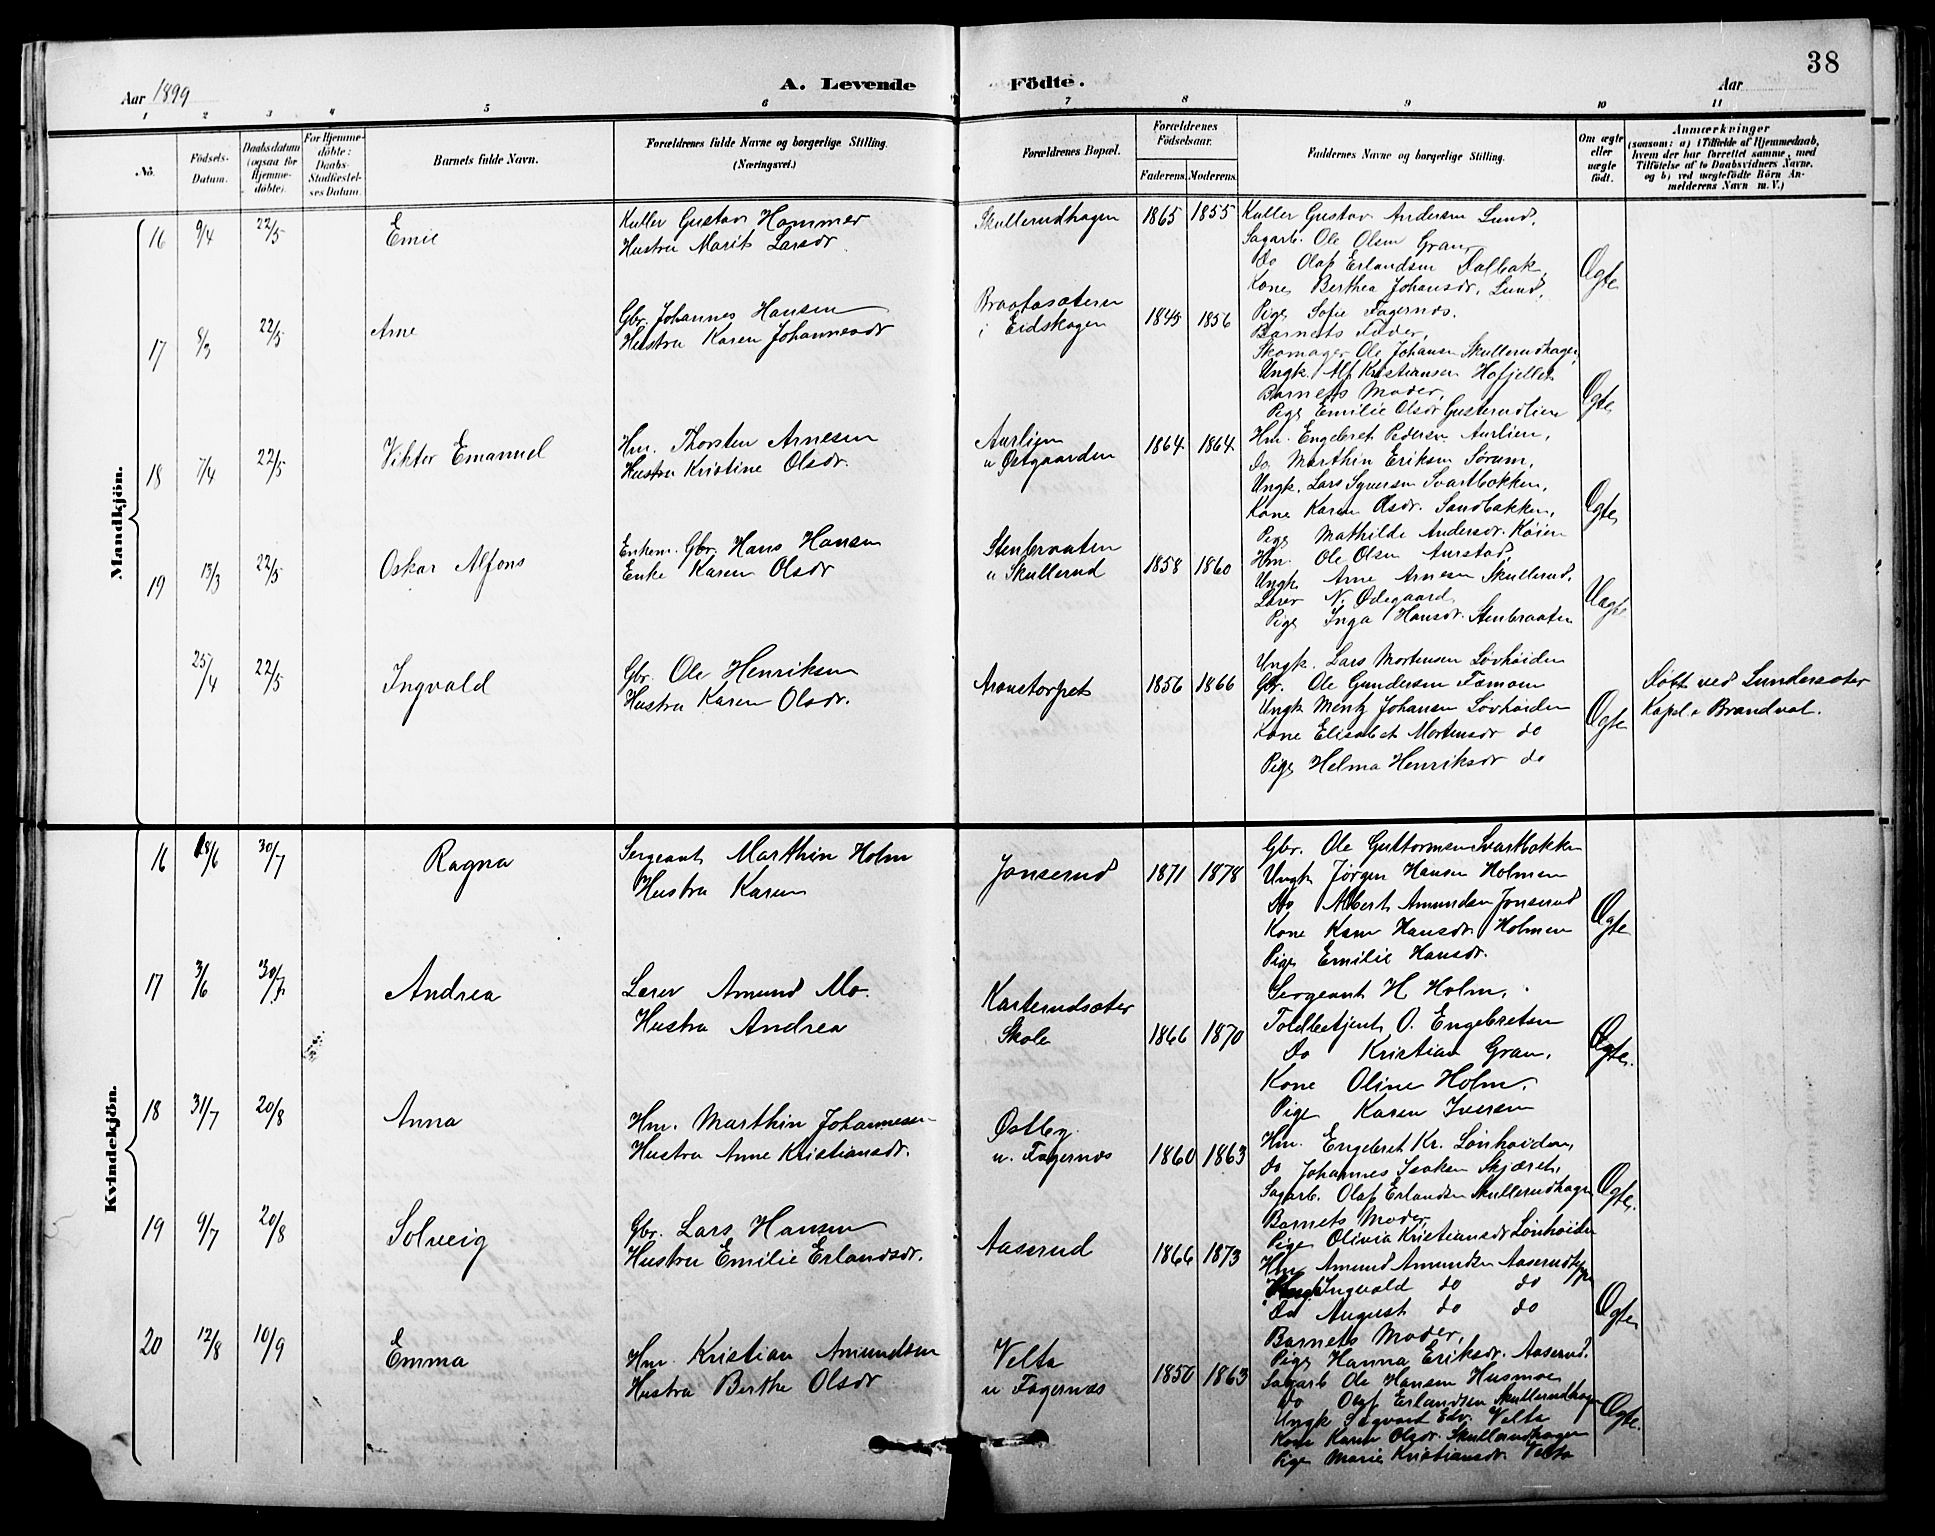 38
Aar 1899
A. Levende Födte.
Aar
1 2 3 4 5 6 7 8 9 10 11
No.
Födsels-Datum.
Daabsdatum (ogsaa for Hjemmedöbte).
For Hjemmedöbte: Daabs-Stadfæstelses Datum.
Barnets fulde Navn.
Forældrenes fulde Navne og borgerlige Stilling. (Næringsvei.)
Forældrenes Bopæl.
Forældrenes Födselsaar.
Faderens. Moderens.
Faddernes Navne og borgerlige Stilling.
Om ægte eller uægte födt.
Anmærkninger
(saasom: a) i Tilfælde af Hjemmedaab, hvem der har forrettet samme, med Tilföielse af to Daabsvidners Navne, og b) ved uægtefödte Börn Anmelderens Navn m. V.)
Mandkjön.
16 9/4 22/5 Emil
Kuller Gustav Hammer
Hustru Marit Larsdr.
Skullerudhagen 1865 1855
Kuller Gustav Andersen Lund,
Sagarb. Ole Olsen Gran,
Do Olaf Erlandsen Dalbak,
Kone Berthea Johansdr. Lund,
Pige Sofie Fagernæs.
Ægte
17 8/3 22/5 Arne
Gbr. Johannes Hansen
Hustru Karen Johannesdr
Braatasæteren
i Eidskogen 1845 1856
Barnets Fader,
Skomager Ole Johansen Skullerudhagen,
Ungk. Alf Kristiansen Hofjellet
Barnets Moder,
Pige Emilie Olsdr Gusterudlien
Ægte
18 7/4 22/5 Viktor Emanuel
Hm. Thorsten Arnesen
Hustru Kristine Olsdr.
Aurlien
u Østgaarden 1864 1864
Hm. Engebret Pedersen Aurlien,
Do. Marthin Eriksen Sorum,
Ungk. Lars Syversen Svartbokken,
Kone Karen Olsdr. Sandbakken,
Pige Mathilde Andersdr. Køien
Ægte
19 13/3 22/5 Oskar Alfons
Enkem. Gbr. Hans Hansen
Enke Karen Olsdr
Stenbraaten
u Skullerud 1858 1860
Hm. Ole Olsen Aurstad,
Ungk Arne Arnesen Skullerud,
Lærer N. Ødegaard
Pige Inga Hansdr. Stenbraaten
Uægte
25/4 22/5 Ingvald
Gbr. Ole Henriksen
Hustru Karen Olsdr.
Aronstorpet 1856 1866
Ungk. Lars Mortensen Løvhøiden
Gbr. Ole Gundersen Fæmoen
Ungk Mentz Johansen Løvhøiden
Kone Elisabet Mortensdr do
Pige Helma Henriksdr do
Ægte
Døbt ved Lundersæter
Kapel i Brandval.
Kvindekjön.
16 18/6 30/7 Ragna
Sergeant Marthin Holm
Hustru Karen
Jonserud 1871 1878
Gbr. Ole Guttormsen Svartbokken
Ungk Jørgen Hansen Holmen
Do Albert Amundsen Jonserud
Kone Karen Hansdr. Holmen
Pige Emilie Hansdr.
Ægte
17 3/6 30/7 Andrea
Lærer Amund Mo.
Hustru Andrea
Karterudsæter
Skole 1866 1870
Sergeant H Holm,
Toldbetjent O. Engebretsen
Do Kristian Gran,
Kone Oline Holm,
Pige Karen Iversen
Ægte.
18 31/7 20/8 Anna
Hm. Marthin Johannessen
Hustru Anne Kristiansdr.
Østby
u. Fagernæs 1860 1863
Hm. Engebret Kr. Lønhøiden,
Do Johannes Isaksen Skjæret,
Sagarb. Olaf Erlandsen Skullerudhagen
Barnets Moder,
Pige Olivia Kristiansdr Lønhøiden
Ægte.
19 9/7 20/8 Solveig
Gbr. Lars Hansen
Hustru Emilie Erlandsdr.
Aaserud 1866 1873
Hm Amund Amundsen Aaserud
Ungk Ingvald do do
Do August do do
Barnets Moder,
Pige Hanna Eriksdr. Aaserud.
Ægte
20 12/8 10/9 Emma
Hm. Kristian Amundsen
Hustru Berthe Olsdr
Velta
u Fagernæs 1850 1863
Sagarb Ole Hansen Husmoe,
Do Olaf Erlandsen Skullerudhagen
Ungk Sagvart Edv. Velta
Kone Karen Olsdr. Skullerudhagen
Pige Marie Kristiansdr. Velta
Ægte.